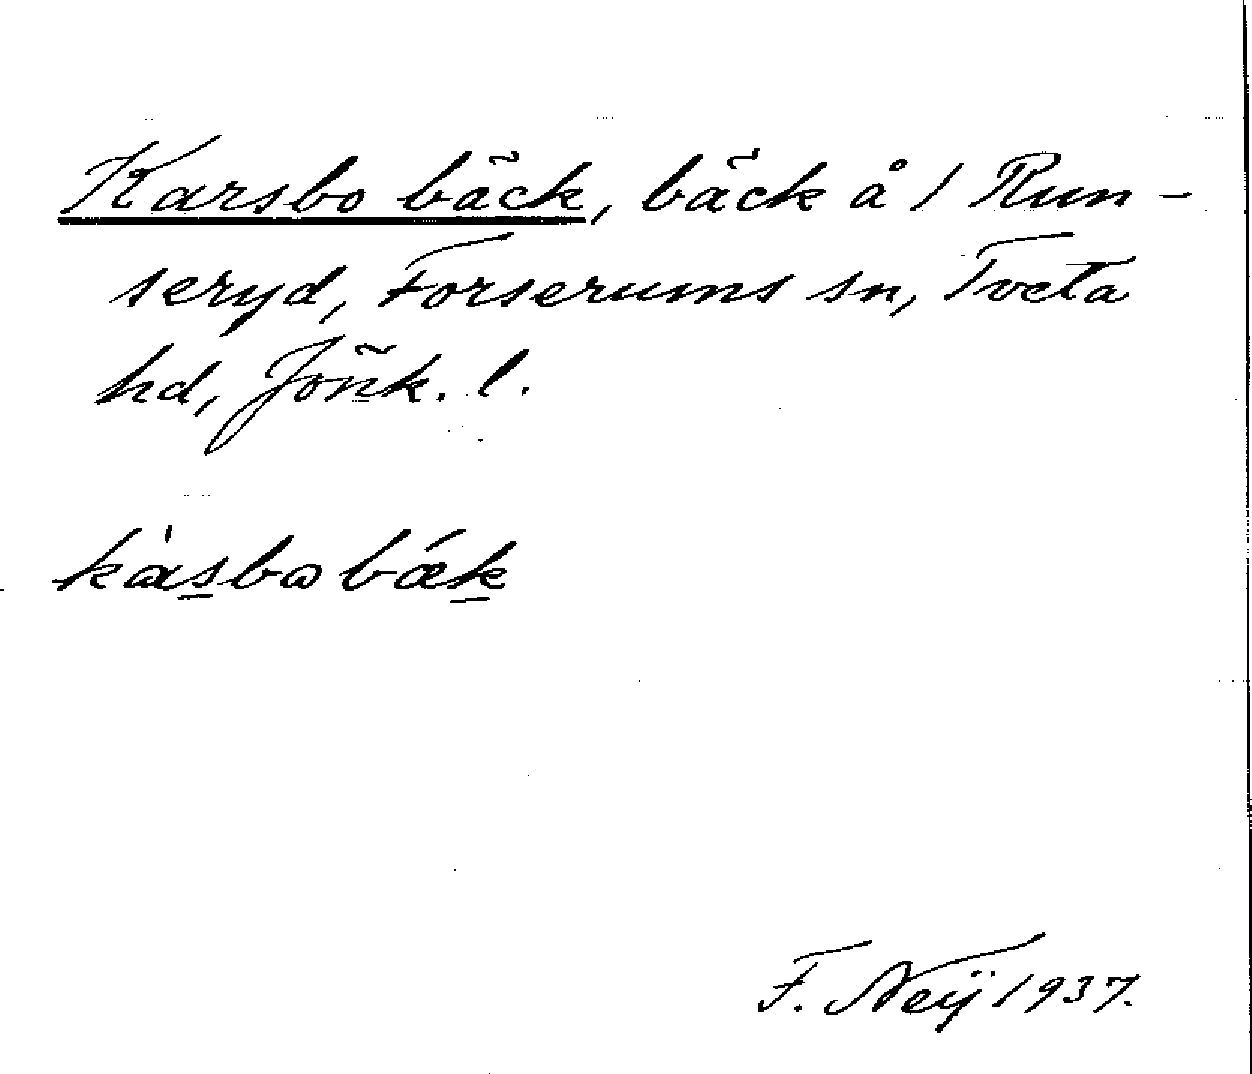 Karsbo bäck, bäck å 1 Run-
seryd, Forserums sn, Tveta
hd, Jönk. l.
kàsbobǽk
F. Neÿ 1937.